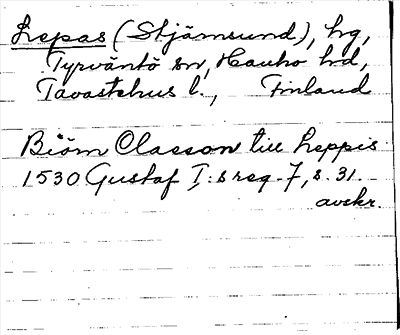 Lepas (Stjämsund), hg,
Tyrväntö sn, Hauho hd,
Tavastehus l., Finland
Biöm Classon till Leppis
1530 Gustaf I:s reg. 7, s. 31.
avskr.